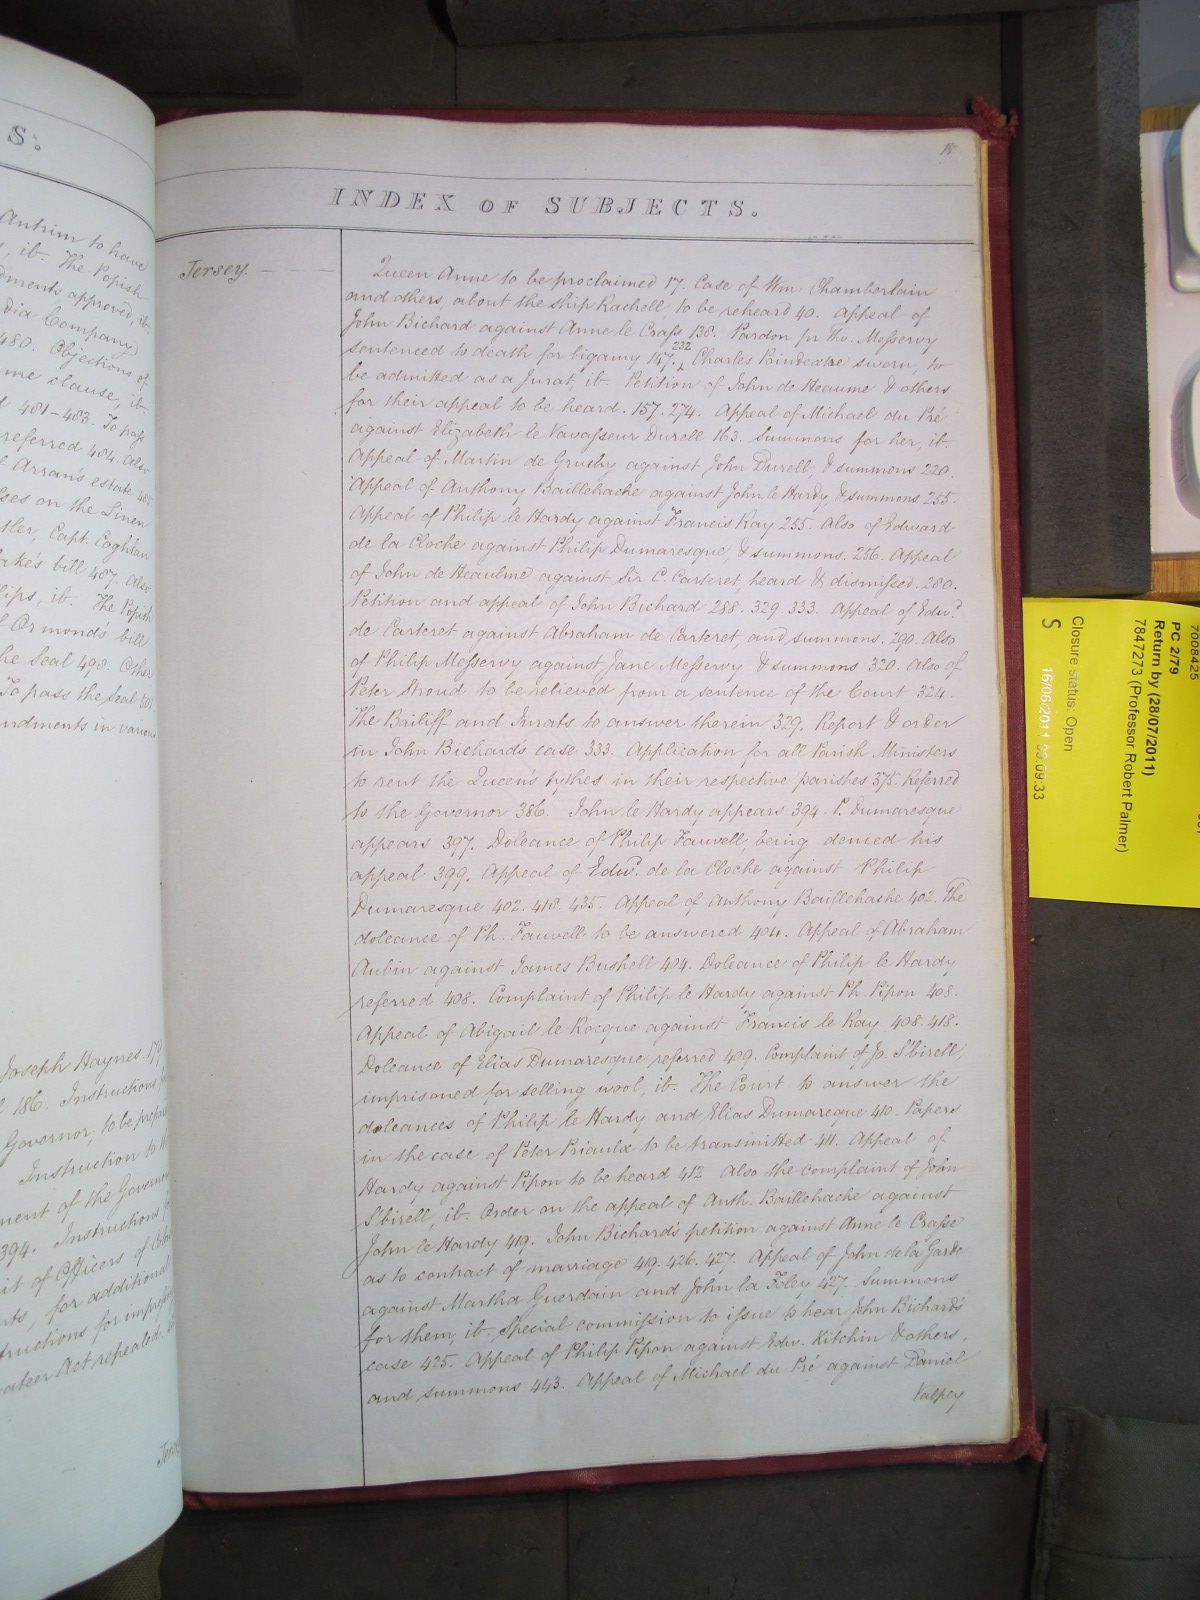 S.
Antrim to have
, ib. The Popish
dments approved, ib.
dia Company
480. Objections of
me clause, ib.
481-483. To pass
referred 484. Also
Arran's estate
on the Linen
Capt. Coghlan
bill 487. Also
ib. The Popish
Ormond's bill
he Seal 498. Other
To pass the Seal
ndments in various
Joseph Haynes
186. Instructions
Governor, to be
Instruction to
ment of the Governor
394. Instructions
of Officers of
for additional
Act repealed
18
INDEX OF SUBJECTS.
Jersey.
Queen Anne to be proclaimed 17. Case of Wm. Chamberlain
and others, about the ship Rachell, to be reheard 40. Appeal of
John Bichard against Anne le Crass 138. Pardon for Tho. Messervy
232
sentenced to death for bigamy 147. Charles Poindextre sworn, to
be admitted as a Jurat, ib. Petition of John de Heaume & others
for their appeal to be heard. 157. 274. Appeal of Michael du Pré
against Elizabeth le Vavasseur Durell 163. Summons for her, ib.
Appeal of Martin de Gruchy against John Durell, & summons 220.
Appeal of Anthony Baillehache against John le Hardy, & summons 255.
Appeal of Philip le Hardy against Francis Kay 255. Also of Edward
de la Cloche against Philip Dumaresque, & summons. 256. Appeal
of John de Heaulme against Sir C. Carteret, heard & dismissed. 280.
Petition and appeal of John Bichard 288. 329. 333. Appeal of Edwd.
de Carteret against Abraham de Carteret and summons. 290. Also
of Philip Messervy against Jane Messervy & summons 320. Also of
Peter Stroud to be relieved from a sentence of the Court 324.
The Bailiff and Jurats to answer therein 329. Report & order
in John Bichard's case 333. Application for all Parish Ministers
to rent the Queen's tythes in their respective parishes 375. Referred
to the Governor 386. John le Hardy appears 394. P. Dumaresque
appears 397. Doleance of Philip Fauvell, being denied his
appeal 399. Appeal of Edwd. de la Cloche against Philip
Dumaresque 402. 418. 435. Appeal of Anthony Baillehache 402. The
doleance of Ph. Fauvell to be answered 404. Appeal of Abraham
Aubin against James Bushell 404. Doleance of Philip le Hardy
referred 408. Complaint of Philip le Hardy against Ph. Pipon 408.
Appeal of Abigail le Rocque against Francis le Ray 408. 418.
Doleance of Elias Dumaresque referred 409. Complaint of Jo. S'birell,
imprisoned for selling wool, ib. The Court to answer the
doleances of Philip le Hardy and Elias Dumareque 410. Papers
in the case of Peter Priaulx to be transmitted 411. Appeal of
Hardy against Pipon to be heard 412 Also the complaint of John
S'birell, ib. Order on the appeal of Anth. Baillehache against
John le Hardy 419. John Bichard's petition against Anne le Crasse
as to contract of marriage 419. 426. 427. Appeal of John de la Garde
against Martha Guerdain and John la Foley 427. Summons
for them, ib. Special commission to issue to hear John Bichard's
case 425. Appeal of Philip Pipon against Edw. Kitchin & others,
and summons 443. Appeal of Michael du Pré against Daniel
Valpey
7008425
PC 2/79
Return by (28/07/2011)
7847273 (Professor Robert Palmer)
Closure status: Open
S
16/06/2011 09:09:33